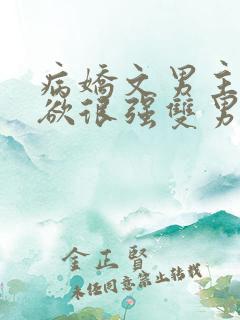 病嬌文男主
欲很强雙男
金正賢
未经同意禁止转载